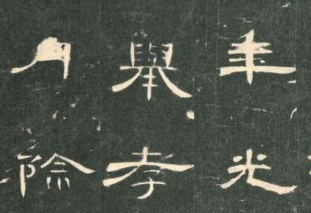 年光
舉孝
月除